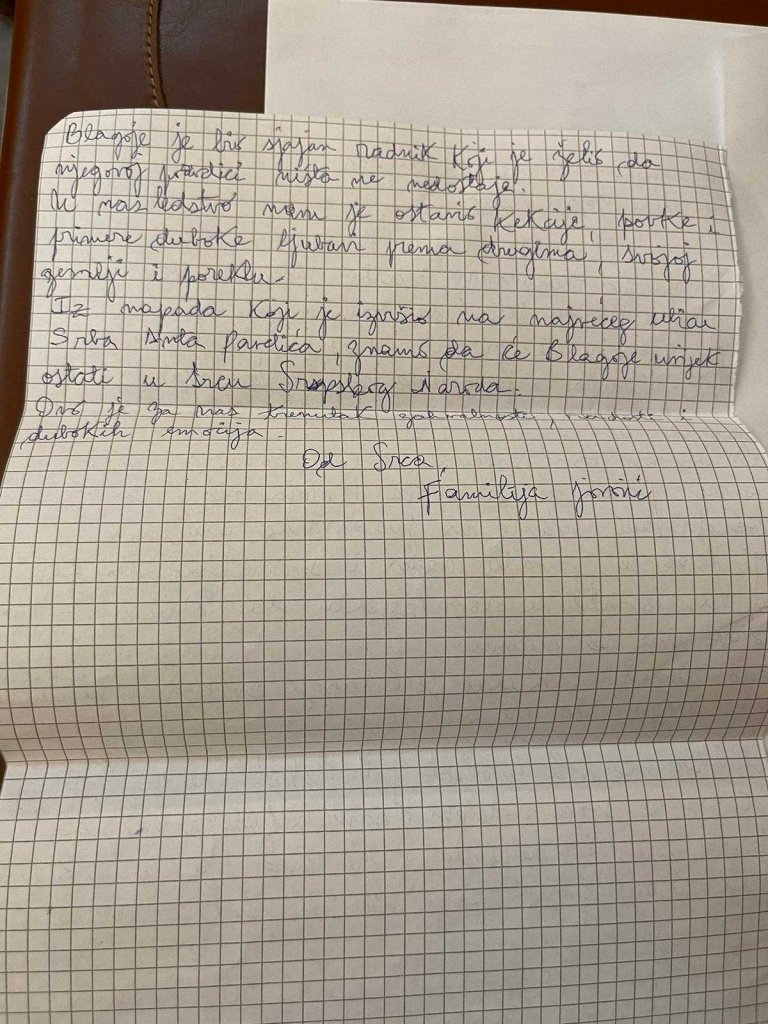 Blagoje je bio sjajan radnik koji je želio da
njegovoj porodici ništa ne nedostaje.
U nasledstvo nam je ostavio lekcije, pouke i
primere duboke ljubavi prema drugima, svojoj
zemlji i poreklu.
Iz napada koji je izvršio na najvećeg ubicu
Srba Anta Pavelića, znamo da će Blagoje uvijek
ostati u srcu Srpskog Naroda.
Ovo je za nas trenutak zahvalnosti, i
dubokih emocija.
Od Srca,
Familija